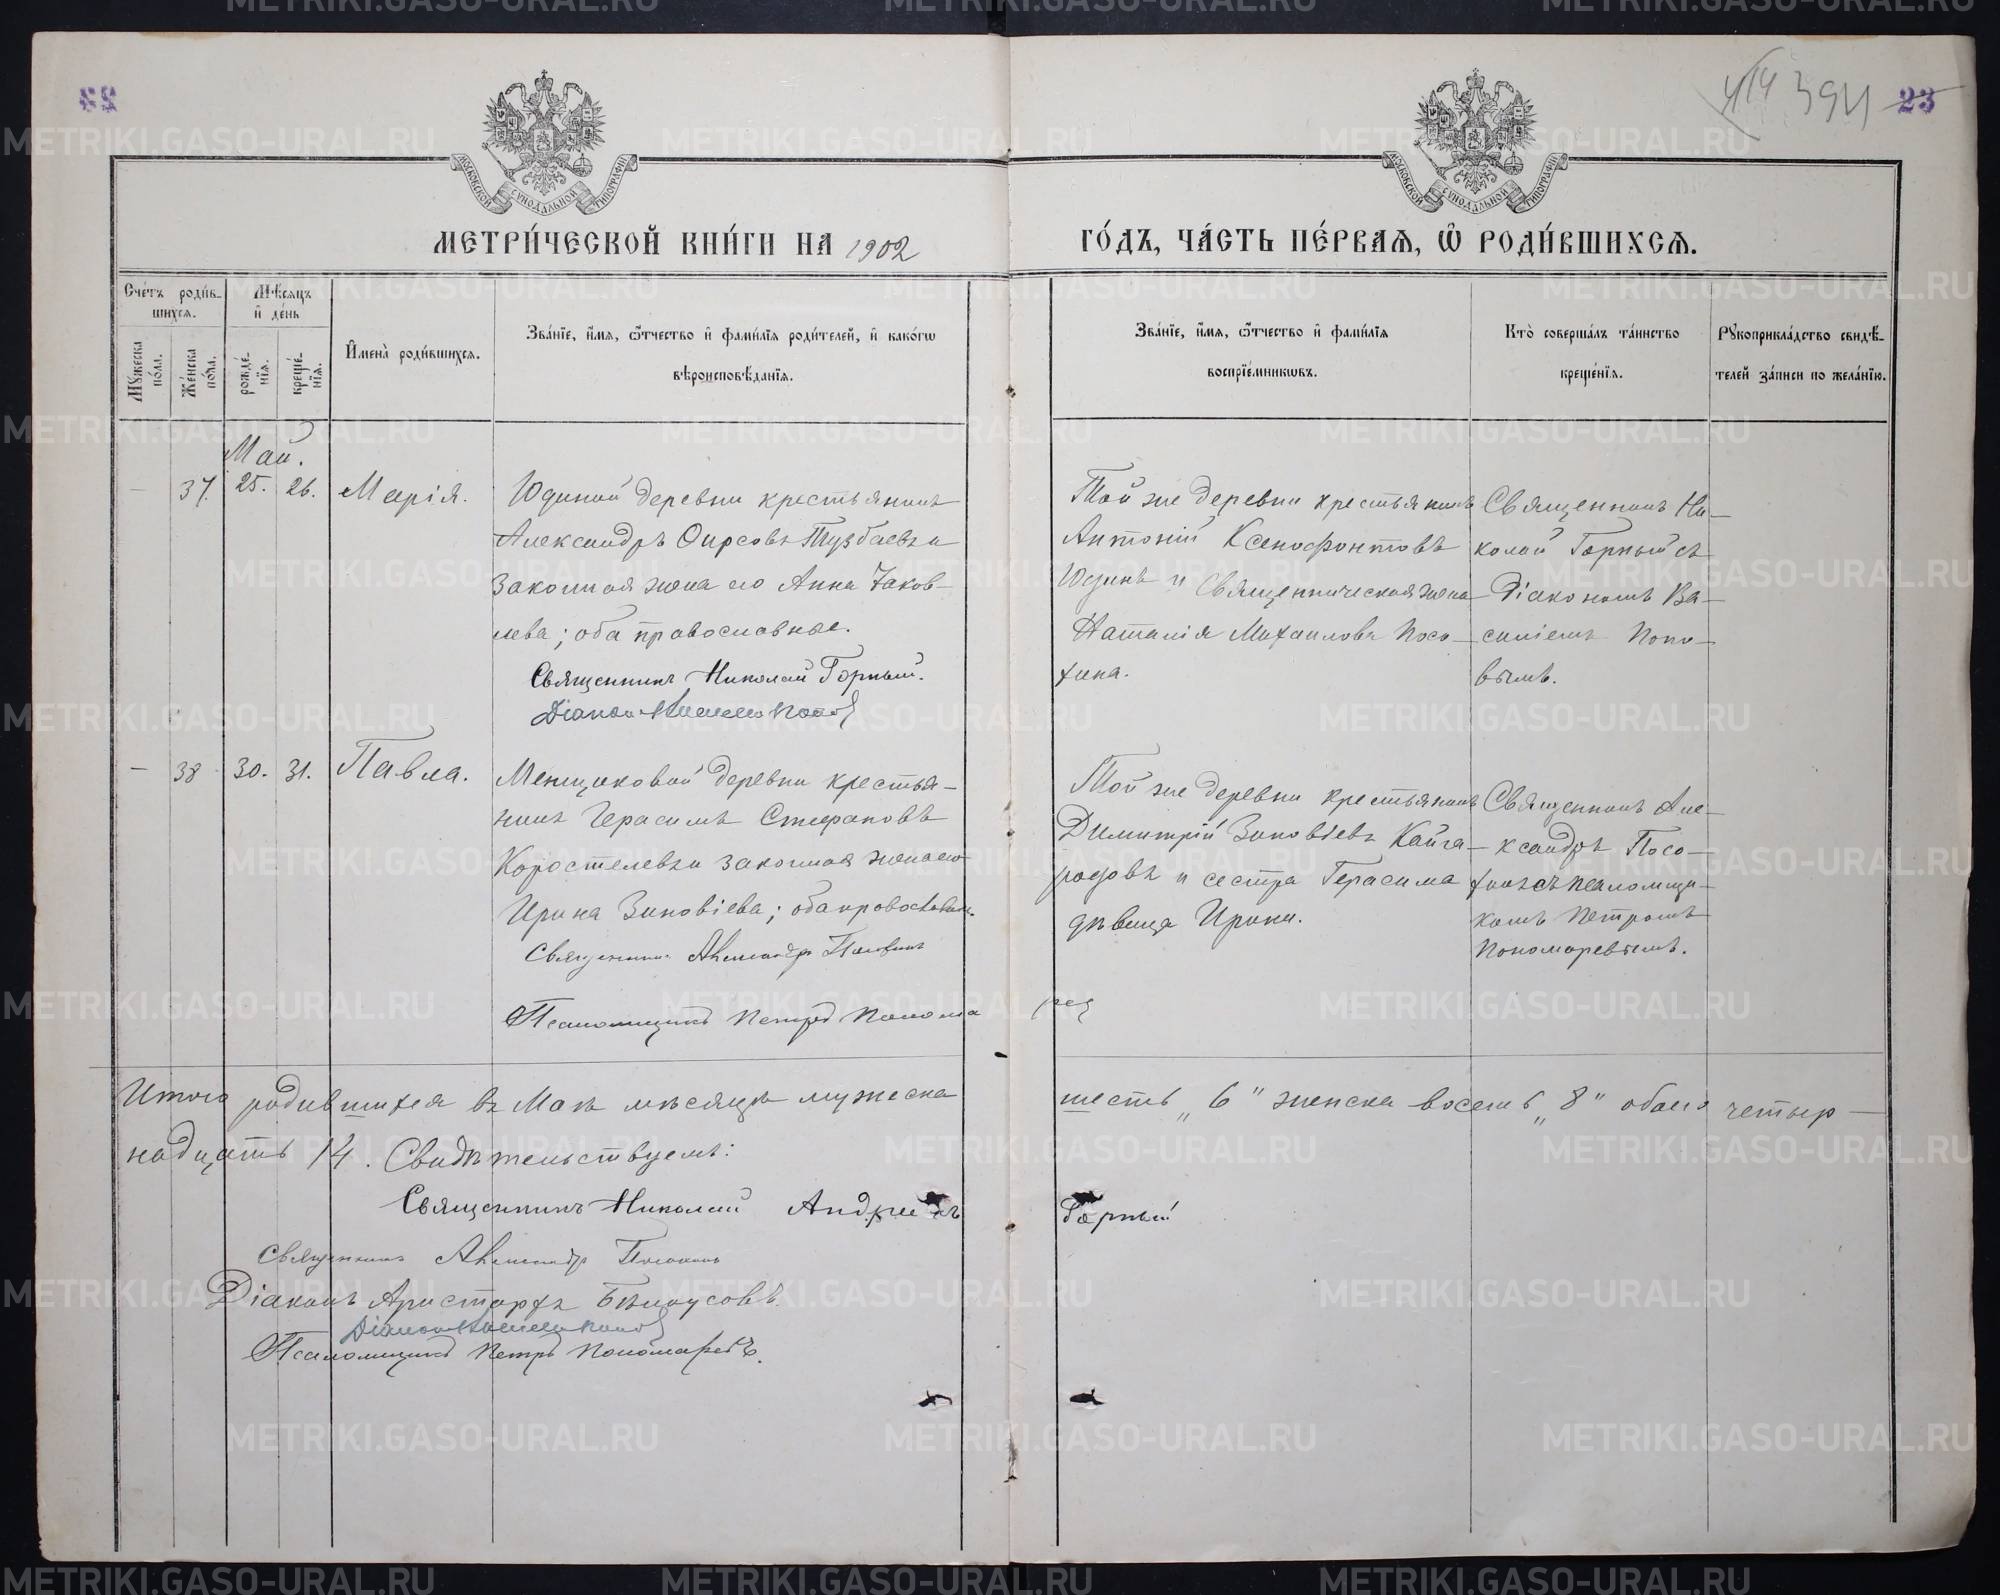 414 394 23
МЕТРИ́ЧЕСКОЙ КНИ́ГИ НА 1902
ГО́ДЪ, ЧА́СТЬ ПЕ́РВАЯ, Ѡ҆ РОДИ́ВШИХСѦ.
Сче́тъ роди́вшихсѧ.
Мѣ́сяцъ и҆ де́нь
Мꙋ́жеска по́ла.
Же́нска по́ла.
рожде́нїѧ.
креще́нїѧ.
И҆мена̀ роди́вшихсѧ.
Зва́нїе, и҆́мѧ, ѻ҆́тчество и҆ фами́лїѧ роди́телей, и҆ како́гѡ
вѣроисповѣ́данїѧ.
Зва́нїе, и҆́мѧ, ѻ҆́тчество и҆ фами́лїѧ
воспрїе́мникѡвъ.
Кто̀ соверша́лъ та́инство
креще́нїѧ.
Рꙋкоприкла́дство свидѣ́-
телей за́писи по жела́нїю.
Май.
— 37. 25. 26. Марія.
Юдиной деревни крестьянинъ
Александръ Ѳирсовъ Тузбаевъ и
законная жена его Анна Яков-
лева; оба православные.
Священникъ Николай Горный.
Діаконъ Василій Поповъ
Той же деревни крестьянинъ
Антоній Ксенофонтовъ
Юдинъ и Священническая жена
Наталія Михаилова Посо-
хина.
Священникъ Ни-
колай Горный съ
Діакономъ Ва-
силіемъ Попо-
вымъ.
— 38 30. 31. Павла.
Менщиковой деревни крестья-
нинъ Герасимъ Стефановъ
Коростелевъ и законная жена его
Ирина Зиновіева; оба православные.
Священникъ Александръ Посохинъ
Псаломщикъ Петръ Пономаревъ
Той же деревни крестьянинъ
Димитрій Зиновіевъ Кайга-
родовъ и сестра Герасима
дѣвица Ирина.
Священникъ Але-
ксандръ Посо-
хинъ съ псаломщи-
комъ Петромъ
Пономаревымъ.
Итого родившихся въ Маѣ мѣсяцѣ мужеска шесть „6" женска восемь „8" обоего четыр-
надцать 14. Свидѣтельствуемъ:
Священникъ Николай Андреевъ Горный
Священникъ Александръ Посохинъ
Діаконъ Аристархъ Бѣлоусовъ.
Діаконъ Василій Поповъ
Псаломщикъ Петръ Пономаревъ.
METRIKI.GASO-URAL.RU